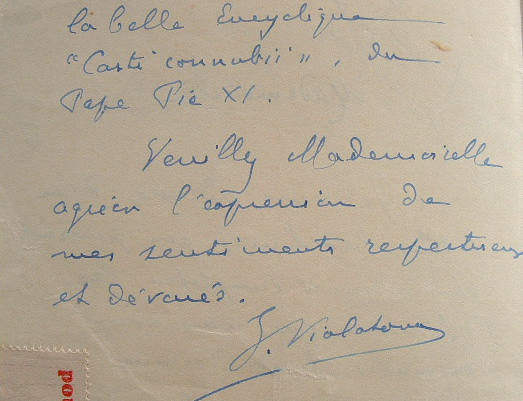 la belle Encyclique
"Casti connubii", du
Pape Pie XI.
Veuillez Mademoiselle
agréer l'expression de
mes sentiments respectueux
et dévoués.
J. Vialatoux
pou